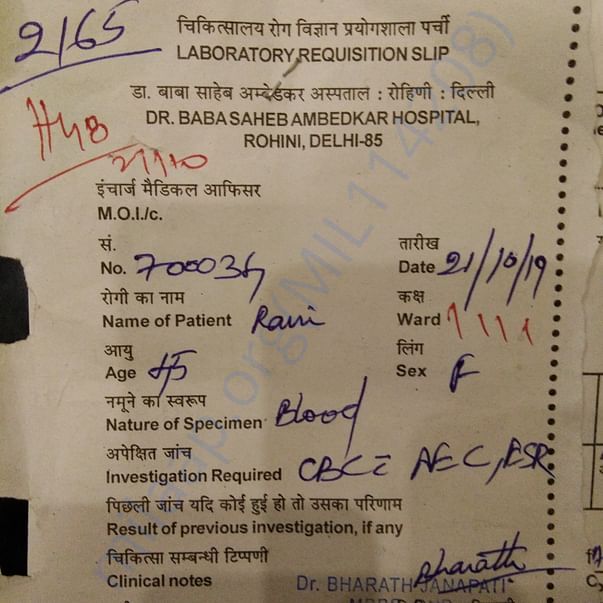 2165
चिकित्सालय रोग विज्ञान प्रयोगशाला पर्ची
LABORATORY REQUISITION SLIP
डा. बाबा साहेब अम्बेडकर अस्पताल : रोहिणी : दिल्ली
DR. BABA SAHEB AMBEDKAR HOSPITAL,
ROHINI, DELHI-85
H48
21/10
इंचार्ज मैडिकल आफिसर
M.O.I./c.
सं. तारीख
No. Date 21/10/19
रोगी का नाम कक्ष
Name of Patient Ward
आयु लिंग
Age 45 Sex F
नमूने का स्वरूप
Nature of Specimen Blood
अपेक्षित जांच
Investigation Required CBC c̄ AEC, ESR
पिछली जांच यदि कोई हुई हो तो उसका परिणाम
Result of previous investigation, if any
चिकित्सा सम्बन्धी टिप्पणी
Clinical notes Bharath
Dr. BHARATH JANAPATI